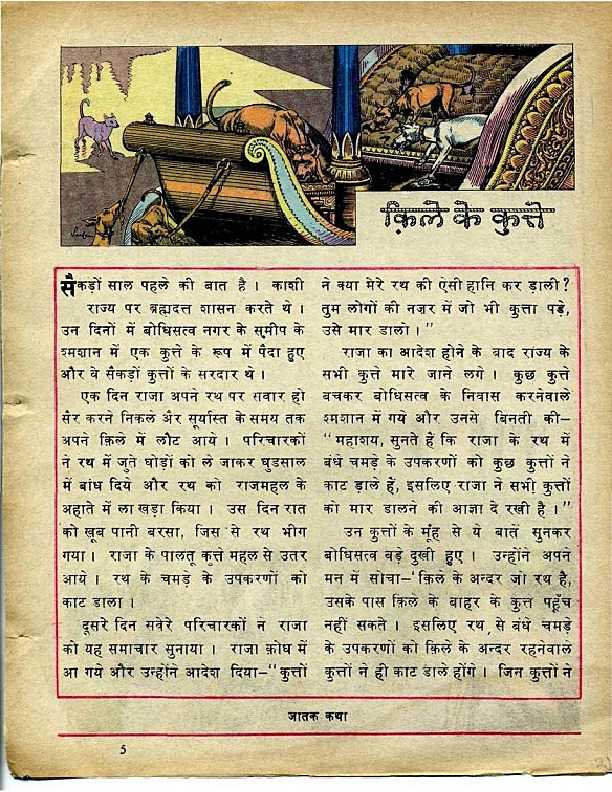 क़िले के कुत्ते
सैकड़ों साल पहले की बात है । काशी
राज्य पर ब्रह्मदत्त शासन करते थे ।
उन दिनों में बोधिसत्व नगर के सुमीप के
श्मशान में एक कुत्ते के रूप में पैदा हुए
और वे सैकड़ों कुत्तों के सरदार थे ।
एक दिन राजा अपने रथ पर सवार हो
सैर करने निकले और सूर्यास्त के समय तक
अपने क़िले में लौट आये । परिचारकों
ने रथ में जुते घोड़ों को ले जाकर घुड़साल
में बांध दिये और रथ को राजमहल के
अहाते में ला खड़ा किया । उस दिन रात
को खूब पानी बरसा, जिस से रथ भीग
गया । राजा के पालतू कुत्ते महल से उतर
आये । रथ के चमड़े के उपकरणों को
काट डाला ।
दूसरे दिन सवेरे परिचारकों ने राजा
को यह समाचार सुनाया । राजा क्रोध में
आ गये और उन्होंने आदेश दिया–"कुत्तों
ने क्या मेरे रथ की ऐसी हानि कर डाली ?
तुम लोगों की नज़र में जो भी कुत्ता पड़े,
उसे मार डालो ।"
राजा का आदेश होने के बाद राज्य के
सभी कुत्ते मारे जाने लगे । कुछ कुत्ते
बचकर बोधिसत्व के निवास करनेवाले
श्मशान में गये और उनसे बिनती की–
"महाशय, सुनते हैं कि राजा के रथ में
बंधे चमड़े के उपकरणों को कुछ कुत्तों ने
काट डाले हैं, इसलिए राजा ने सभी कुत्तों
को मार डालने की आज्ञा दे रखी है ।"
उन कुत्तों के मूंह से ये बातें सुनकर
बोधिसत्व बड़े दुखी हुए । उन्होंने अपने
मन में सोचा–'क़िले के अन्दर जो रथ है,
उसके पास क़िले के बाहर के कुत्ते पहुँच
नहीं सकते । इसलिए रथ से बंधे चमड़े
के उपकरणों को क़िले के अन्दर रहनेवाले
कुत्तों ने ही काट डाले होंगे । जिन कुत्तों ने
जातक कथा
5